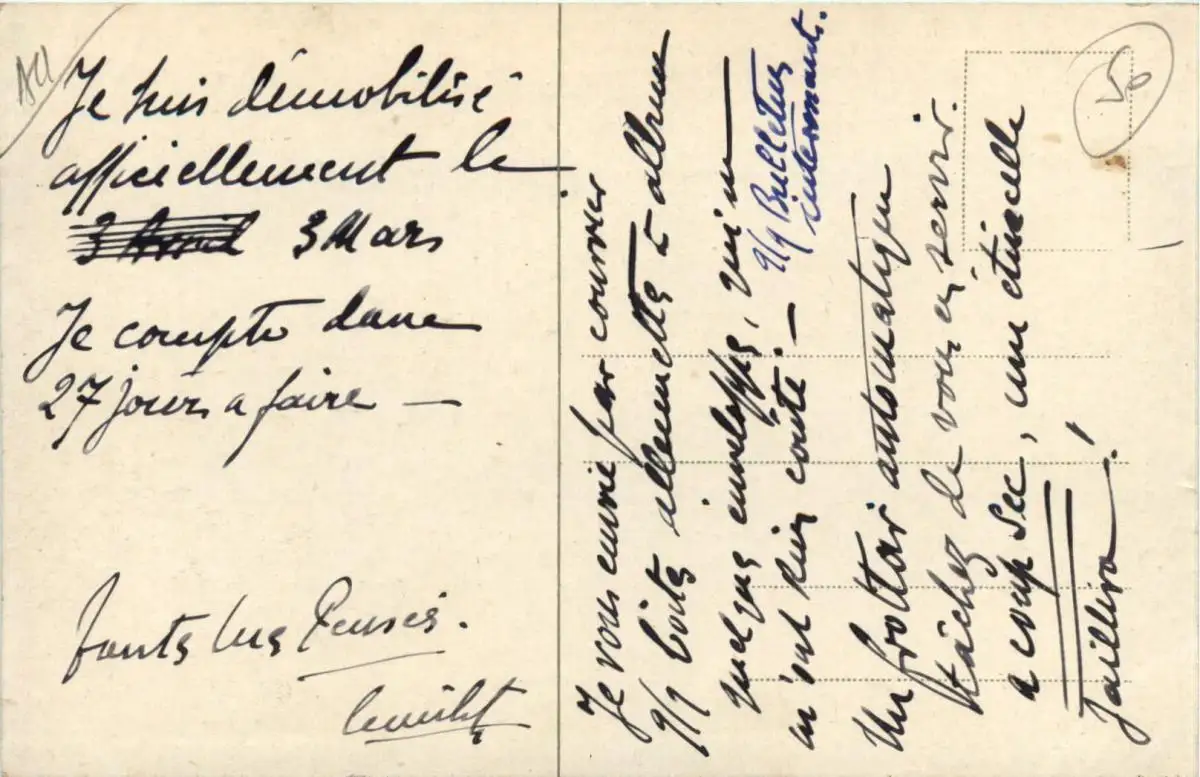 Je suis démobilisé
officiellement le
3 Avril 3 Mars
Je compte donc
27 jours a faire —
Toutes mes Pensés.
Je vous envoie par courrier
q/q boites allumettes & album
quelques enveloppes, qui ne
m'ont rien couté. —
q/q Bulletins
interessants.
Un frottoir automatique
tâchez de vous en servir.
a coup sec, une étincelle
Jaillira!
50